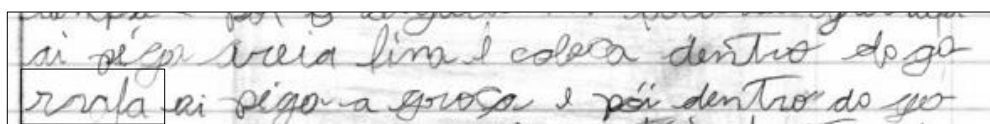 ai péga areia fina e coloca dentro do ga
rrafa ai péga a grosa e pói dentro do ga